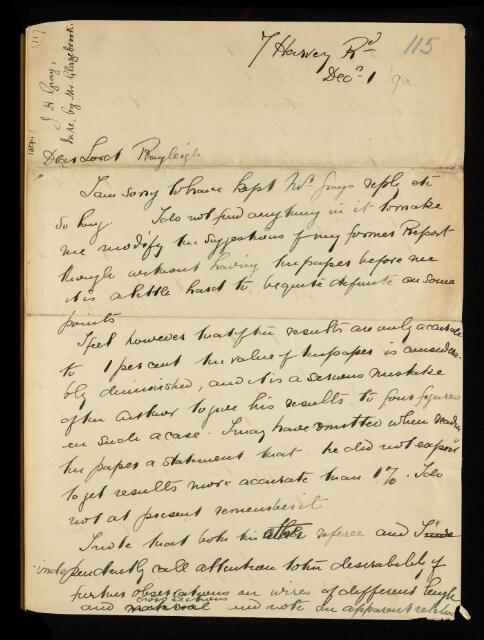 117
J H Gray,
Inre. by Mr. Glazebrook.
7 Harvey Rd
115
Decr 1 92
Dear Lord Rayleigh
I am sorry to have kept Mr Grays reply etc
so long. I do not find anything in it to make
me modify the suggestions of my former Report
though without having the paper before me
it is a little hard to be quite definite on some
points.
I feel however that if the results are only accurate
to 1 per cent the value of the paper is considera-
bly diminished, and it is a serious mistake
of the Author to give his results to four figures
in such a case. I may have omitted when reading
the paper a statement that he did not expect
to get results more accurate than 1%. I do
not at present remember it
I note that both the other referee and I
independently call attention to the desirability of
further observations on wires of different length
and cross sections material and note an apparent relation